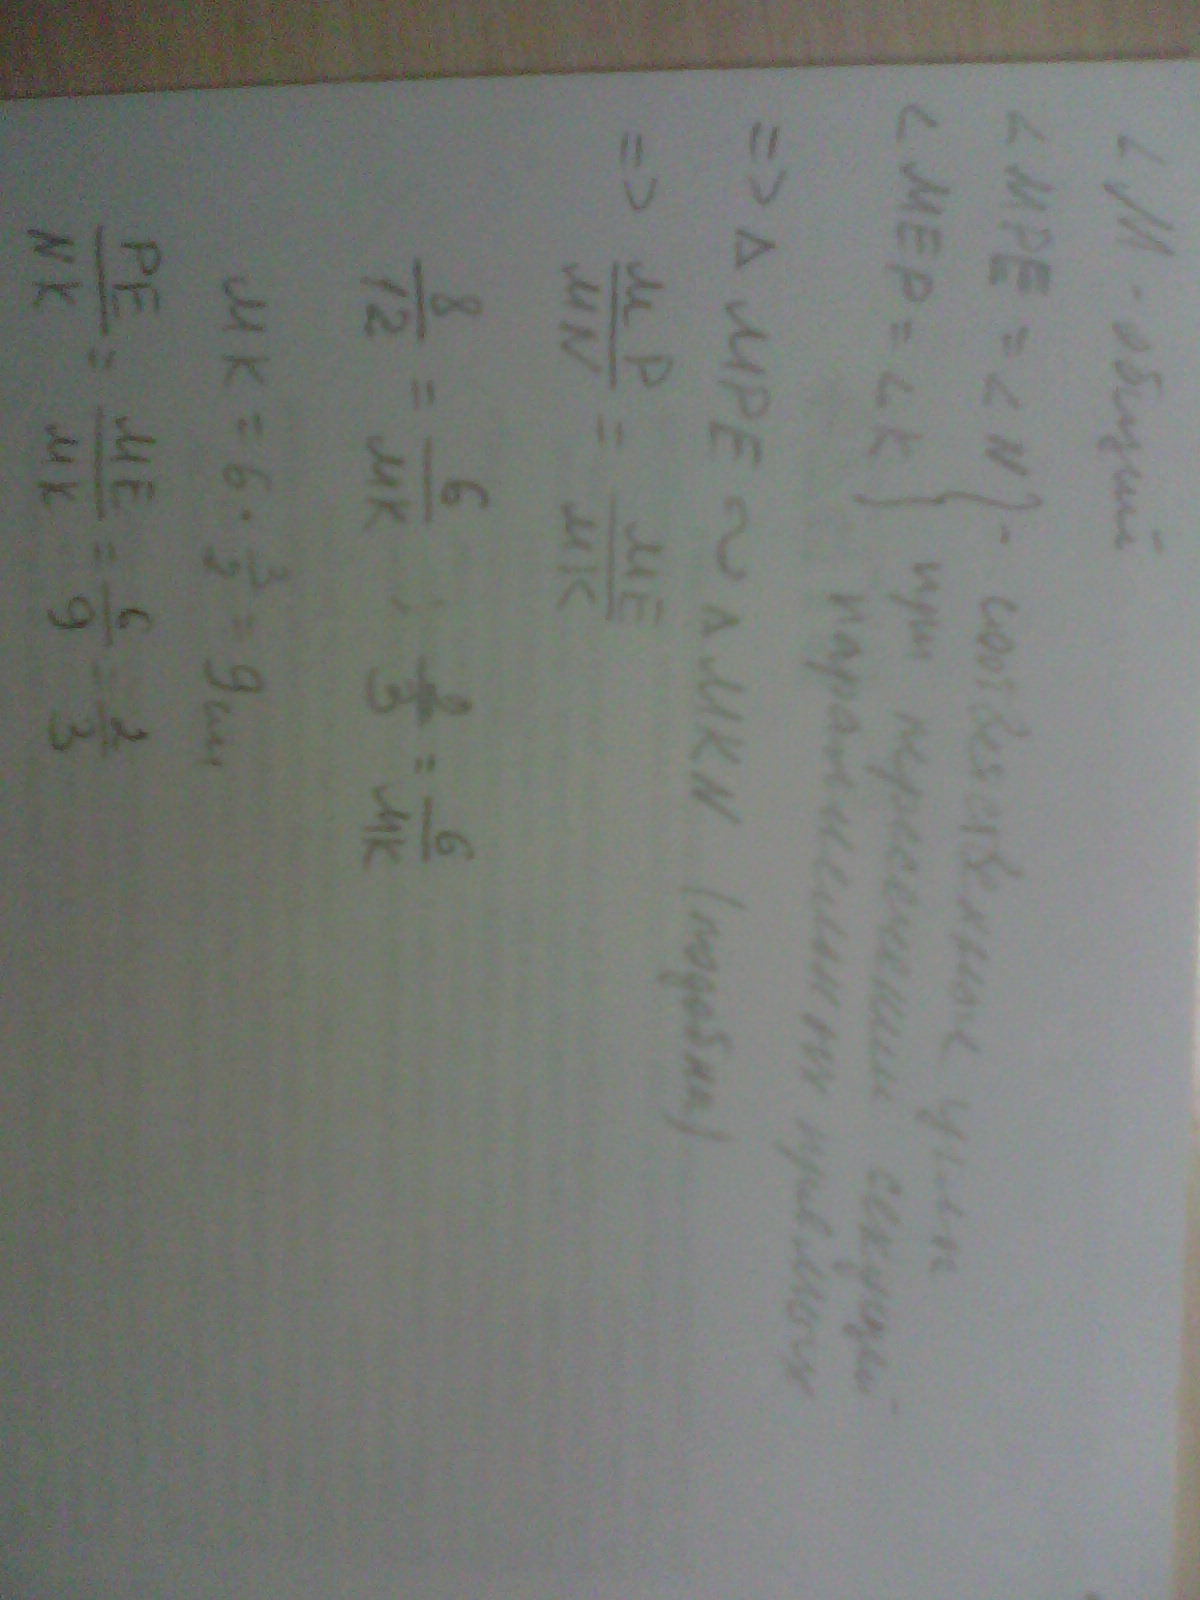 ∠M - общий
∠MPE = ∠N } - соответственные углы
∠MEP = ∠K } при пересечении секущей
параллельных прямых
=> Δ MPE ~ Δ MKN (подобны)
=> MP/MN = ME/MK
8/12 = 6/MK ; 2/3 = 6/MK
MK = 6 · 3/2 = 9 см
PE/NK = ME/MK = 6/9 = 2/3